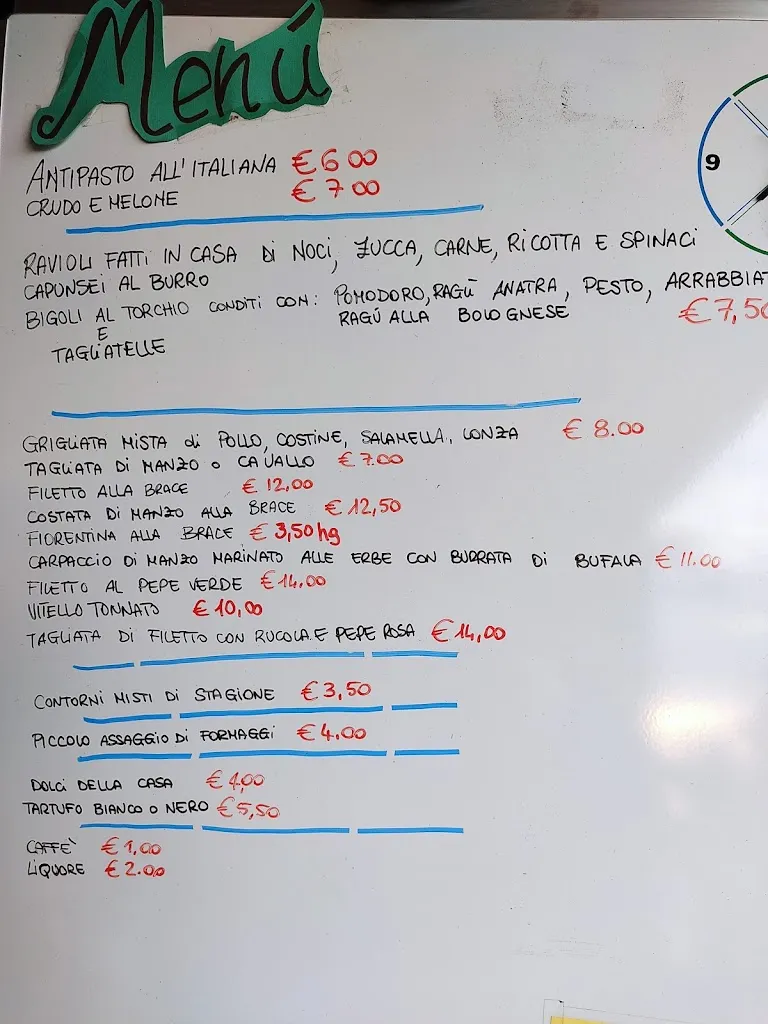 Menú
ANTIPASTO ALL'ITALIANA €6 00
CRUDO E MELONE €7 00
9
RAVIOLI FATTI IN CASA Di NOCi, ZUCCA, CARNE, RiCOTTA E SPINACi
CAPUNSEi AL BURRO
BIGOLI AL TORCHIO CONDITI CON: POMODORO, RAGÙ ANATRA, PESTO, ARRABBIAT
E RAGÚ ALLA BOLOGNESE €7,50
TAGLiATELLE
GRIGLIATA MISTA di POLLO, COSTINE, SALAMELLA, LONZA € 8.00
TAGLIATA DI MANZO o CAVALLO €7.00
FILETTO ALLA BRACE €12,00
COSTATA DI MANZO ALLA BRACE €12,50
FIORENTINA ALLA BRACE €3,50hg
CARPACCIO DI MANZO MARINATO ALLE ERBE CON BURRATA Di BUFALA €11.00
FILETTO AL PEPE VERDE €14.00
VITELLO TONNATO €10,00
TAGLIATA DI FILETTO CON RUCOLA E PEPE ROSA €14,00
CONTORNI MISTI DI STAGIONE €3,50
PICCOLO ASSAGGIO DI FORMAGGI €4.00
DOLCI DELLA CASA €4,00
TARTUFO BIANCO O NERO €5,50
CAFFE' €1,00
LIQUORE €2.00